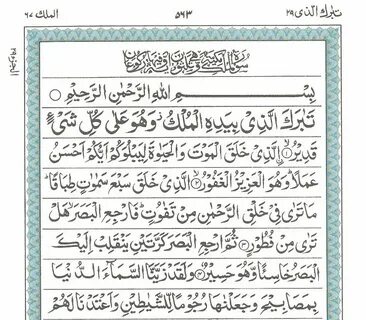 تبٰرك الذی ۲۹ ۵۶۳ الملك ۶۷
بِسْمِ اللهِ الرَّحْمٰنِ الرَّحِيْمِ
تَبٰرَكَ الَّذِیْ بِیَدِهِ الْمُلْكُ وَهُوَ عَلٰی كُلِّ شَیْءٍ
قَدِیْرُۙ ۱ الَّذِیْ خَلَقَ الْمَوْتَ وَالْحَیٰوةَ لِیَبْلُوَكُمْ اَیُّكُمْ اَحْسَنُ
عَمَلًا وَهُوَ الْعَزِیْزُ الْغَفُوْرُ ۲ الَّذِیْ خَلَقَ سَبْعَ سَمٰوٰتٍ طِبَاقًا
مَا تَرٰی فِیْ خَلْقِ الرَّحْمٰنِ مِنْ تَفٰوُتٍ فَارْجِعِ الْبَصَرَ هَلْ
تَرٰی مِنْ فُطُوْرٍ ۳ ثُمَّ ارْجِعِ الْبَصَرَ كَرَّتَیْنِ یَنْقَلِبْ اِلَیْكَ
الْبَصَرُ خَاسِئًا وَّهُوَ حَسِیْرٌ ۴ وَلَقَدْ زَیَّنَّا السَّمَآءَ الدُّنْیَا
بِمَصَابِیْحَ وَجَعَلْنٰهَا رُجُوْمًا لِّلشَّیٰطِیْنِ وَاَعْتَدْنَا لَهُمْ